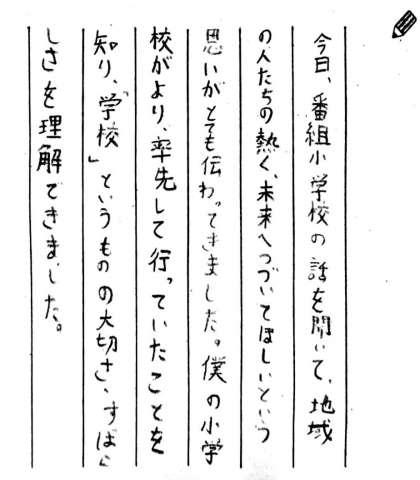 今日、番組小学校の話を聞いて、地域
の人たちの熱く、未来へつづいてほしいという
思いがとても伝わってきました。僕の小学
校がより、率先して行っていたことを
知り、「学校」というものの大切さ、すばら
しさを理解できました。